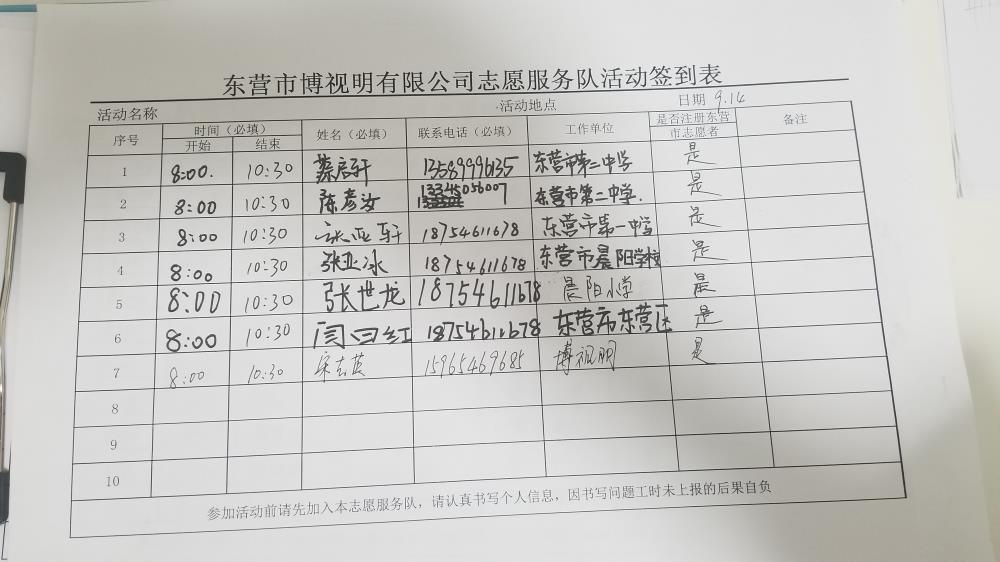 东营市博视明有限公司志愿服务队活动签到表
活动名称 活动地点 日期 9.14
序号 时间（必填） 姓名（必填） 联系电话（必填） 工作单位 是否注册东营市志愿者 备注
开始 结束
1 8:00. 10:30 蔡启轩 13589996135 东营市第二中学 是
2 8:00 10:30 陈彦汝 13345056007 东营市第二中学. 是
3 8:00 10:30 张亚轩 18754611678 东营市第一中学 是
4 8:00 10:30 张亚冰 18754611678 东营市晨阳学校 是
5 8:00 10:30 张世龙 18754611678 晨阳小学 是
6 8:00 10:30 闫四红 18754611678 东营市东营区 是
7 8:00 10:30 15965469685 博视明 是
8
9
10
参加活动前请先加入本志愿服务队，请认真书写个人信息，因书写问题工时未上报的后果自负